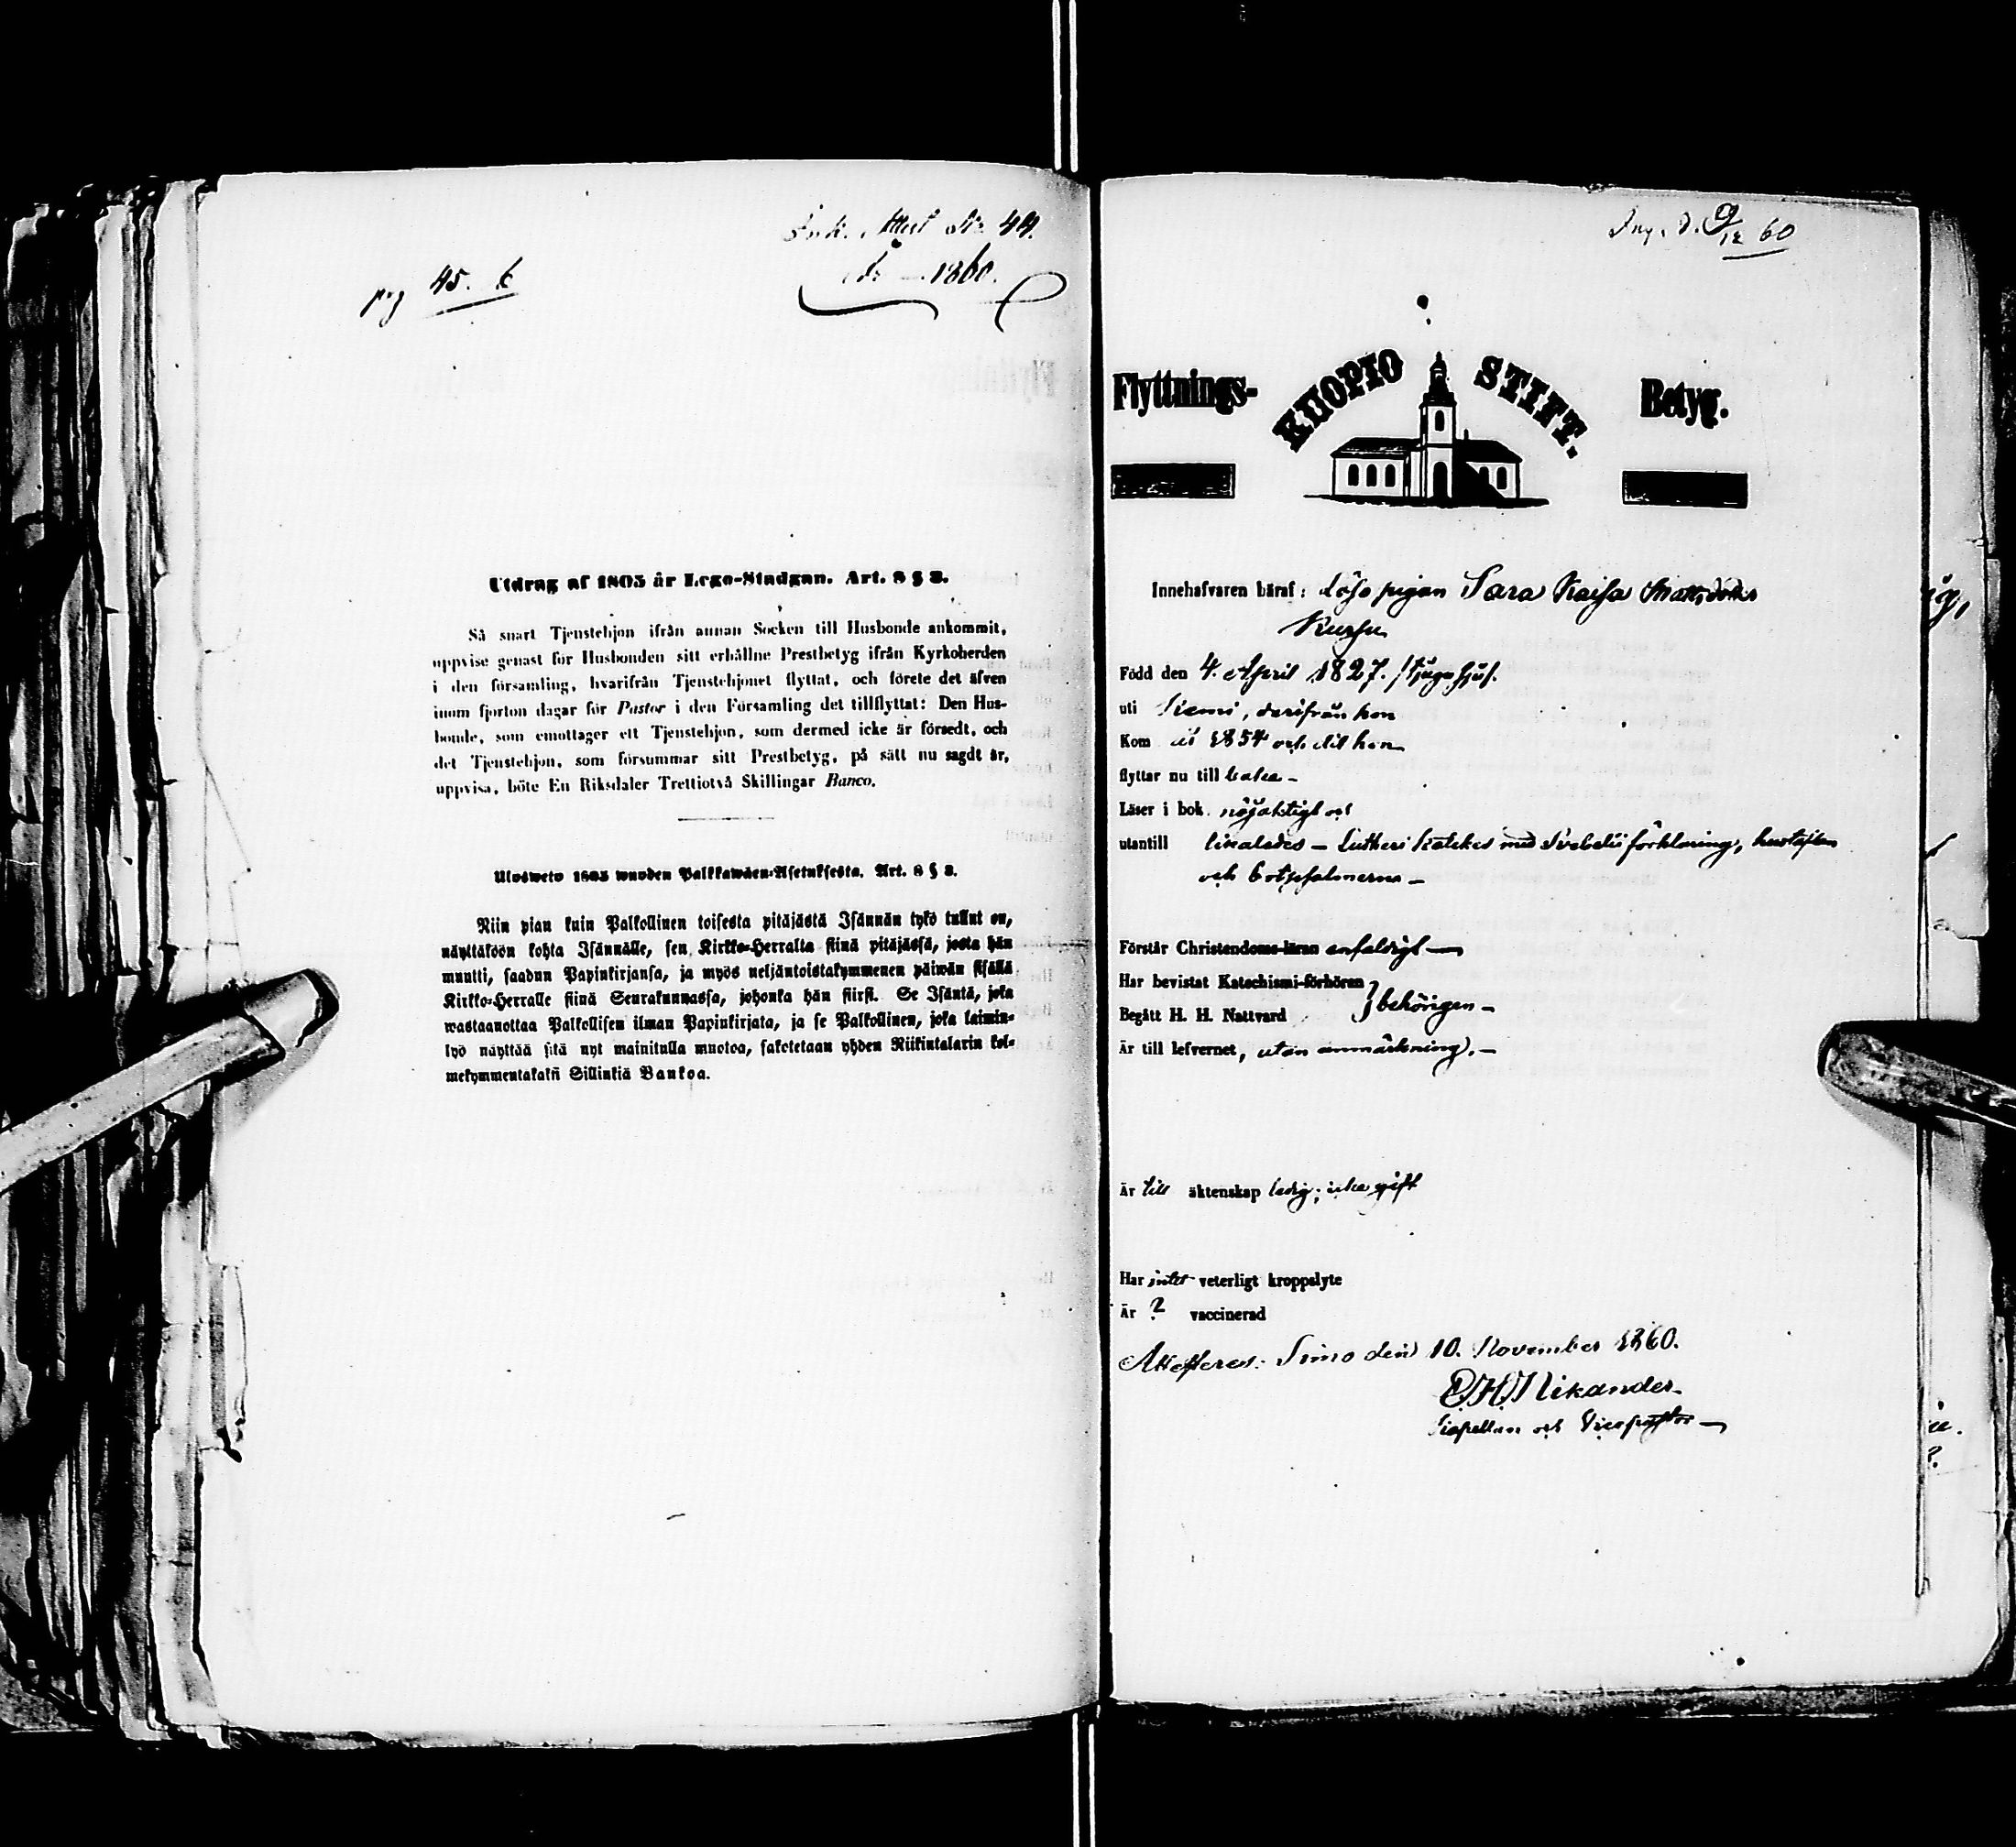 Ink. Attest No 44.
1860.
pag 45. b
Utdrag af 1805 år Lego-Stadgan. Art. 8 § 3.
Så snart Tjenstehjon ifrån annan Socken till Husbonde ankommit,
uppvise genast för Husbonden sitt erhållne Prestbetyg ifrån Kyrkoherden
i den församling, hvarifrån Tjenstehjonet flyttat, och förete det äfven
inom fjorton dagar för Pastor i den Församling det tillflyttat: Den Hus-
bonde, som emottager ett Tjenstehjon, som dermed icke är försedt, och
det Tjenstehjon, som försummar sitt Prestbetyg, på sätt nu sagdt är,
uppvisa, böte En Riksdaler Trettiotvå Skillingar Banco.
Ulosweto 1805 wuoden Palkkawäen-Asetuksesta. Art. 8 § 3.
Niin pian kuin Palkollinen toisesta pitäjästä Isännän tykö tullut on,
näyttäköön kohta Isännälle, sen Kirkko-Herralta siinä pitäjässä, josta hän
muutti, saadun Papinkirjansa, ja myös neljäntoistakymmenen päiwän sisällä
Kirkko-Herralle siinä Seurakunnassa, johonka hän siirsi. Se Isäntä, joka
wastaanottaa Palkollisen ilman Papinkirjata, ja se Palkollinen, joka laimin-
lyö näyttää sitä nyt mainitulla muotoa, sakotetaan yhden Riikintalarin kol-
mekymmentakaksi Sillinkiä Bankoa.
Ing. d. 9/12 60
Flyttnings- KUOPIO STIFT. Betyg.
Innehafvaren häraf: Lösa pigan Sara Kaisa Mattsdotter
Kursu
Född den 4. April 1827. /tjugusju/.
uti Kemi, derifrån hon
Kom år 1854 och dit hon
flyttar nu till baka –
Läser i bok nöjaktigt och
utantill likaledes – Lutheri Katekes med Svebelii förklaring, hustaflan
och botpsalmerna –
Förstår Christendoms-läran enfaldigt –
Har bevistat Katechismi-förhören
Begått H. H. Nattvard } behörigen –
Är till lefvernet, utan anmärkning. –
Är till äktenskap ledig; icke gift
Har intet veterligt kroppslyte
Är ? vaccinerad
Attesteras: Simo den 10. November 1860.
Nikander
Kapellan och Vicepastor –